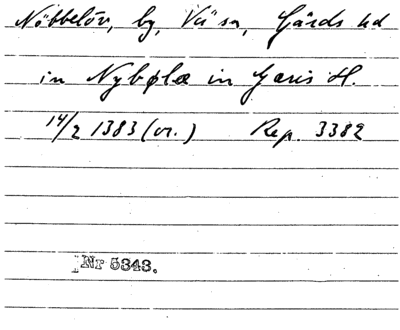 Nöbbelöv, by, Vä sn, Gärds hd
in Nybølæ in Gæris H.
14/2 1383 (or.) Rep. 3382
Nr 5343.